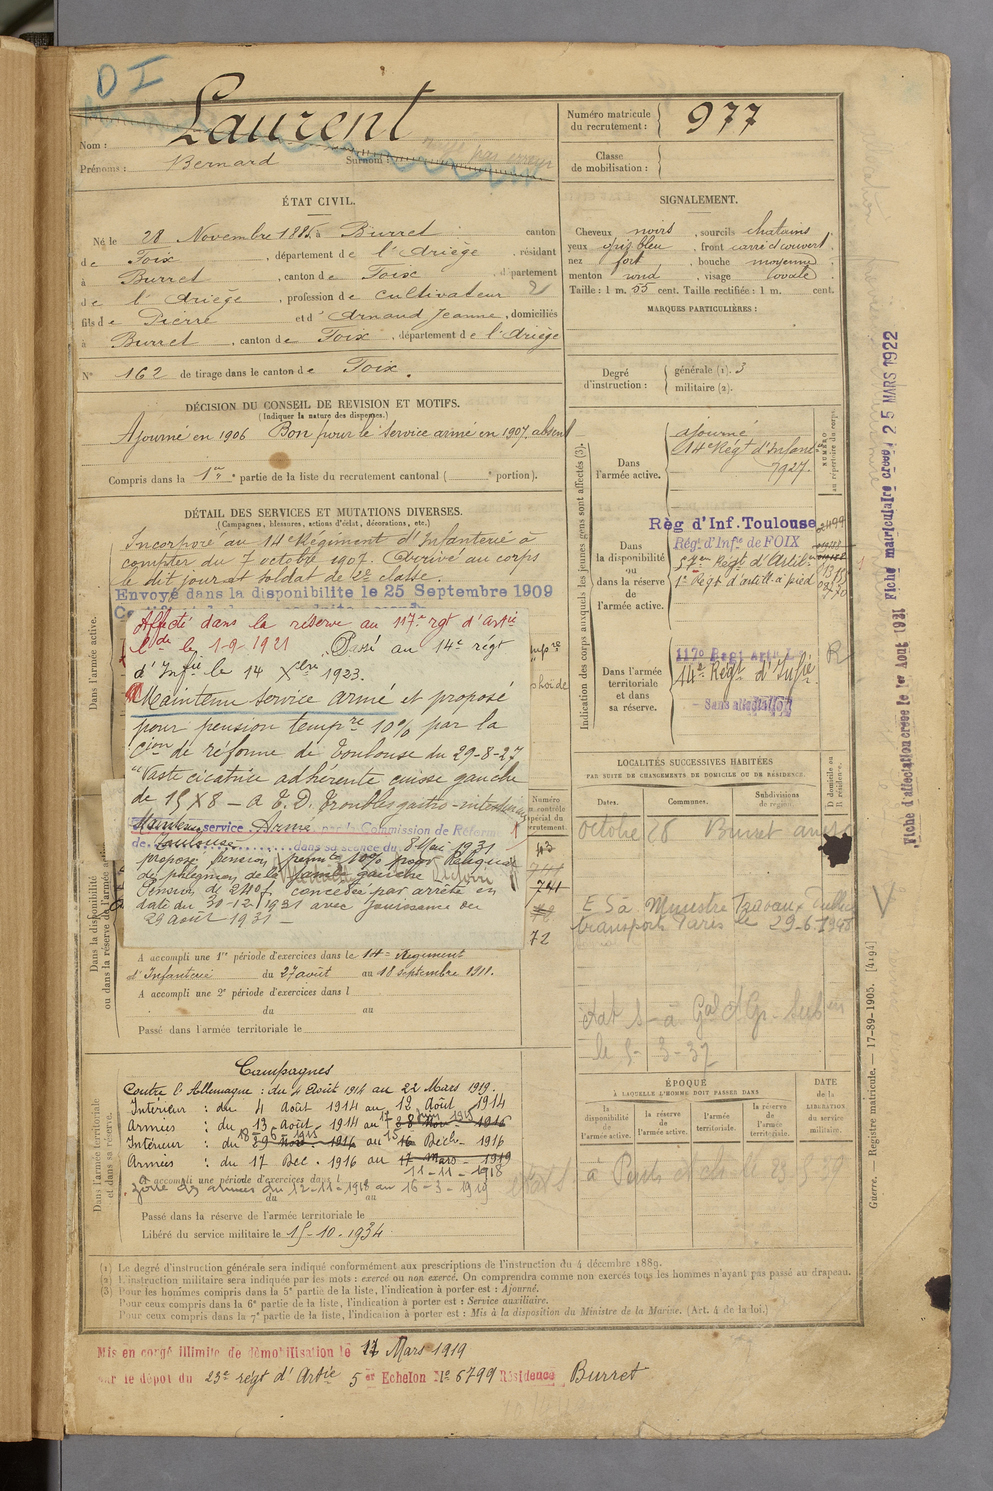 D I
Nom : Laurent
Prénoms : Bernard Surnom :
Numéro matricule du recrutement : 977
Classe de mobilisation :
ÉTAT CIVIL.
Né le 28 Novembre 1885 à Burret canton
de Foix, département de l'Ariège, résidant
à Burret, canton de Foix, département
de l'Ariège, profession de cultivateur
fils de Pierre et d'Arnaud Jeanne, domiciliés
à Burret, canton de Foix, département de l'Ariège
N° 162 de tirage dans le canton de Foix.
SIGNALEMENT.
Cheveux noirs, sourcils chatains
yeux gris bleu, front carré découvert
nez fort, bouche moyenne
menton rond, visage ovale
Taille : 1 m. 55 cent. Taille rectifiée : 1 m. cent.
MARQUES PARTICULIÈRES :
Degré d'instruction : générale (1). 3
militaire (2).
DÉCISION DU CONSEIL DE REVISION ET MOTIFS.
(Indiquer la nature des dispenses.)
Ajourné en 1906 Bon pour le service armé en 1907, absent
Compris dans la 1re partie de la liste du recrutement cantonal ( e portion).
DÉTAIL DES SERVICES ET MUTATIONS DIVERSES.
(Campagnes, blessures, actions d'éclat, décorations, etc.)
Dans l'armée active.
Incorporé au 14e Régiment d'Infanterie à
compter du 7 octobre 1907. Arrivé au corps
le dit jour et soldat de 2e classe.
Envoyé dans la disponibilite le 25 Septembre 1909
Affecté dans la réserve au 117e rgt d'Artie
le 1-9-1921. Passé au 14e régt
d'Infie le 14 Xbre 1923.
Maintenu service armé et proposé
pour pension tempre 10% par la
Cion de réforme de Toulouse du 29-8-27
"Vaste cicatrice adhérente cuisse gauche
de 15 X 8 – A E. D. Troubles gastro-intestinaux
Maintenu service Armé par la Commission de Réform
de Toulouse dans sa séance du 8 Mai 1931
proposé pension permte 10% pour Reliquat
de phlegmon de la jambe gauche
Pension de 240f concédée par arrêté en
date du 30-12-1931 avec jouissance du
29 août 1931 –
Dans la disponibilité ou dans la réserve de l'armée active.
A accompli une 1re période d'exercices dans le 14e Régiment
d'Infanterie du 27 août au 18 septembre 1911.
A accompli une 2e période d'exercices dans l
du au
Passé dans l'armée territoriale le
Numéro au contrôle spécial du recrutement.
43
741
741
72
Indication des corps auxquels les jeunes gens sont affectés (3).
NUMÉRO au répertoire du corps
Dans l'armée active. ajourné
14e Régt d'Infanie
7927
Dans la disponibilité ou dans la réserve de l'armée active.
Règ d'Inf. Toulouse
Régt d'Infie de FOIX
57e Régt d'Artil.
1er Régt d'artill. à pied
Dans l'armée territoriale et dans sa réserve.
117e Regt Artie
14e Régt d'Infie
Sans affectation
R
LOCALITÉS SUCCESSIVES HABITÉES
PAR SUITE DE CHANGEMENTS DE DOMICILE OU DE RÉSIDENCE.
Dates. Communes. Subdivisions de région. D domicile ou R résidence.
octobre 26 Burret
E S à Ministre Travaux Publics
transports Paris le 29-6-
le 5-3-37
ÉPOQUE
À LAQUELLE L'HOMME DOIT PASSER DANS
la disponibilité de l'armée active.
la réserve de l'armée active.
l'armée territoriale.
la réserve de l'armée territoriale.
DATE de la LIBÉRATION du service militaire.
Dans l'armée territoriale et dans sa réserve.
Campagnes
Contre l'Allemagne : du 4 Août 1914 au 22 Mars 1919.
Intérieur : du 4 Août 1914 au 12 Août 1914
Armées : du 13 Août 1914 au 17 1915 28 Nov. 1916
Intérieur : du 18 1915 29 Nov. 1916 au 16 Déch. 1916
Armées : du 17 Dec. 1916 au 17 Mars 1919
11-11-1918
A accompli une période d'exercices dans l
Zône des armées du 12-11-1918 au 16-3-1919
du au
Passé dans la réserve de l'armée territoriale le
Libéré du service militaire le 15-10-1934
(1) Le degré d'instruction générale sera indiqué conformément aux prescriptions de l'instruction du 4 décembre 1889.
(2) L'instruction militaire sera indiquée par les mots : exercé ou non exercé. On comprendra comme non exercés tous les hommes n'ayant pas passé au drapeau.
(3) Pour les hommes compris dans la 5e partie de la liste, l'indication à porter est : Ajourné.
Pour ceux compris dans la 6e partie de la liste, l'indication à porter est : Service auxiliaire.
Pour ceux compris dans la 7e partie de la liste, l'indication à porter est : Mis à la disposition du Ministre de la Marine. (Art. 4 de la loi.)
Mis en congé illimité de démobilisation le 17 Mars 1919
par le dépot du 23e régt d'Artie 5er Echelon No 6799 Résidence Burret
Fiche d'affectation créée le 1er Aout 1921 Fiche matriculaire créée 25 MARS 1922
Guerre. — Registre matricule. — 17-89-1905. [4194]